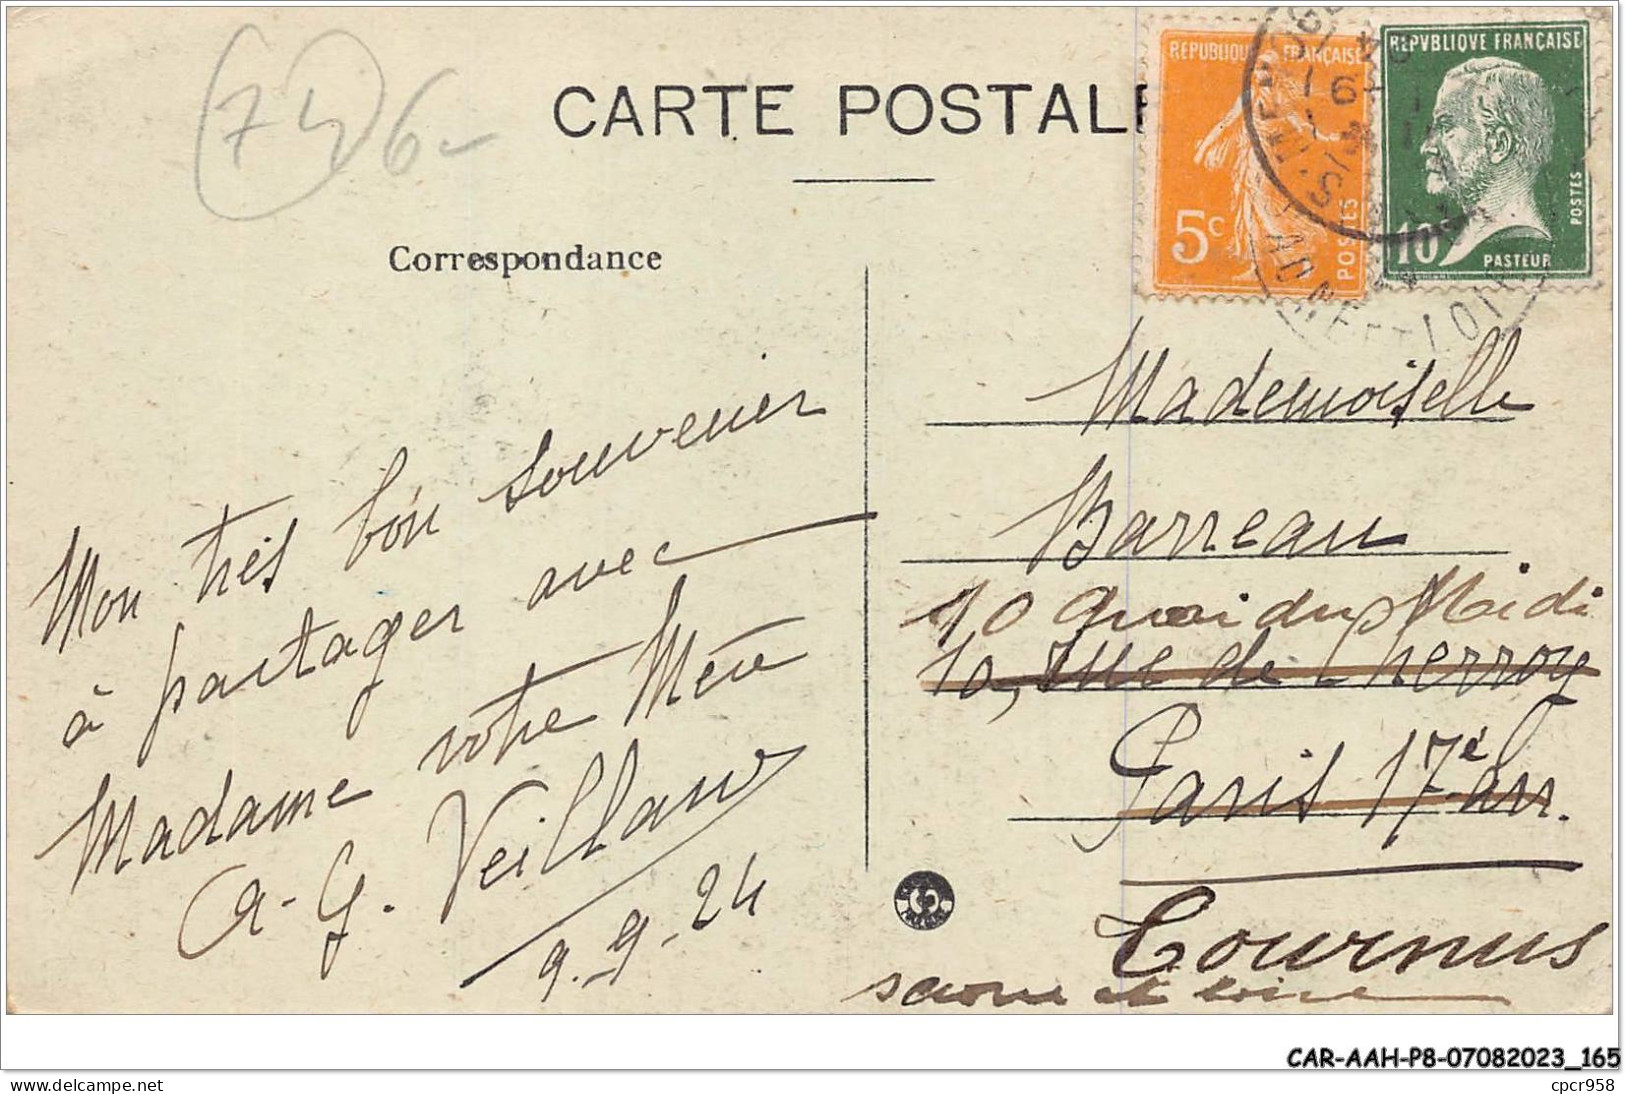 74 6-
CARTE POSTALE
REPUBLIQUE FRANÇAISE
5c
POSTES
REPVBLIQVE FRANÇAISE
10c
PASTEUR
POSTES
ET LOIRE
Correspondance
Mon très bon souvenir
à partager avec
Madame votre Mère
A. G. Veillaud
9.9.24
Mademoiselle
Barreau
10 Quai du Midi
10, rue de Cherroy
Paris 17e Arr.
Tournus
saone et loire
CAR-AAH-P8-07082023_165
cpcr958